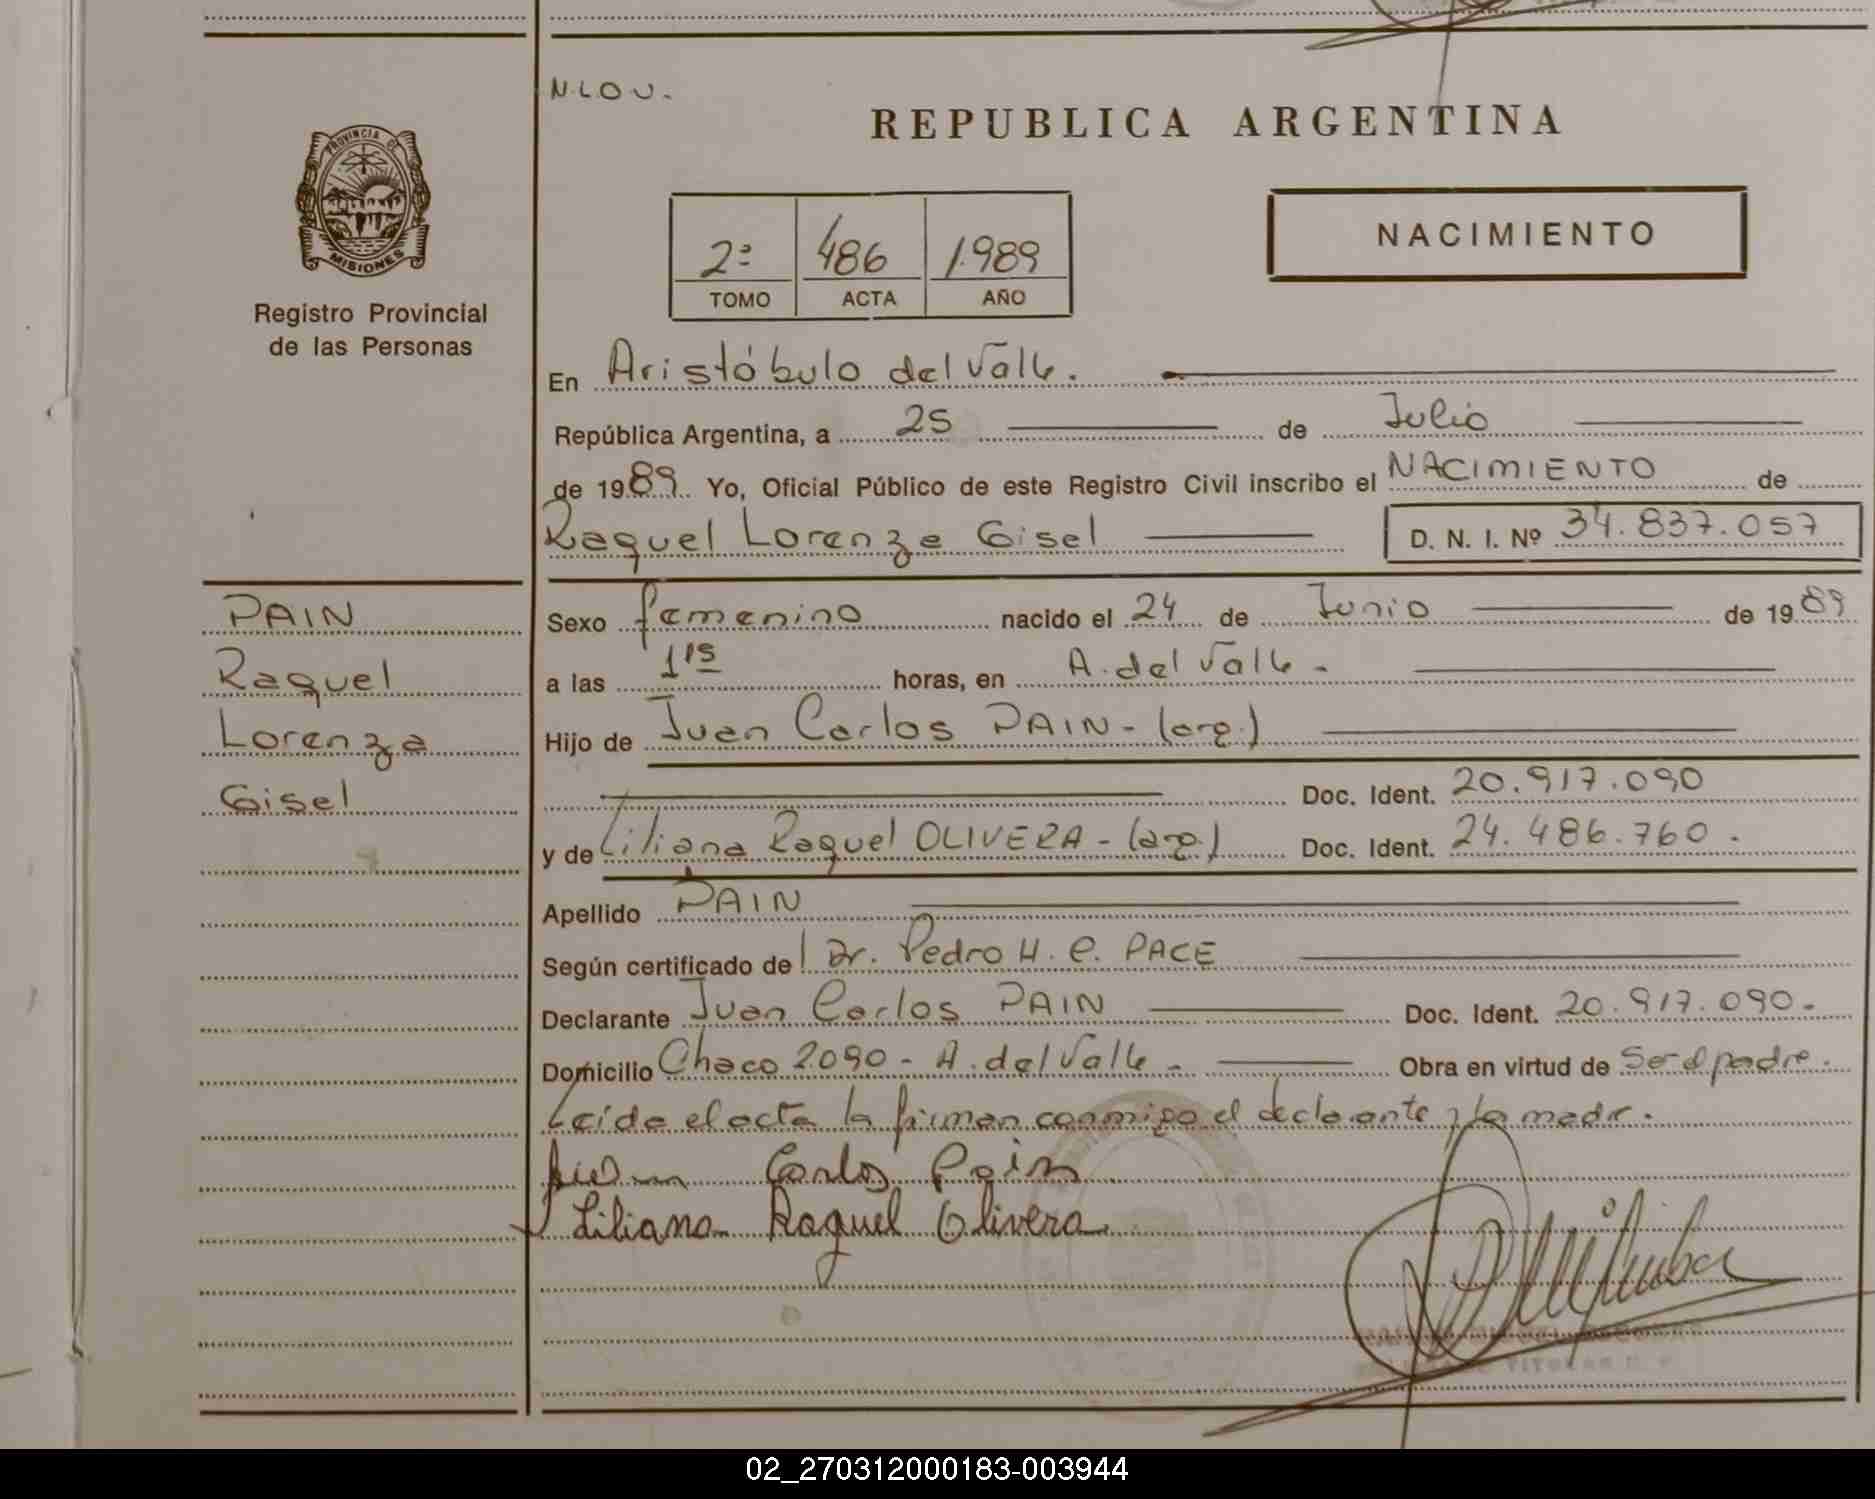 N.L.O.U.
REPUBLICA ARGENTINA
PROVINCIA DE
MISIONES
Registro Provincial
de las Personas
2º 486 1.989
TOMO ACTA AÑO
NACIMIENTO
En Aristóbulo del Valle.
República Argentina, a 25 de Julio
de 1989. Yo, Oficial Público de este Registro Civil inscribo el NACIMIENTO de
Raquel Lorenza Gisel D. N. I. Nº 34.837.057
PAIN
Raquel
Lorenza
Gisel
Sexo femenino nacido el 24 de Junio de 1989
a las 1 horas, en A. del Valle -
Hijo de Juan Carlos PAIN - (arg.)
Doc. Ident. 20.917.090
y de Liliana Raquel OLIVERA - (arg.) Doc. Ident. 24.486.760.
Apellido PAIN
Según certificado del Dr. Pedro H. C. PACE
Declarante Juan Carlos PAIN Doc. Ident. 20.917.090.
Domicilio Chaco 2090 - A. del Valle - Obra en virtud de Ser el padre.
Leida el acta la firman conmigo el declarante y la madre.
Juan Carlos Pain
Liliana Raquel Olivera
02_270312000183-003944